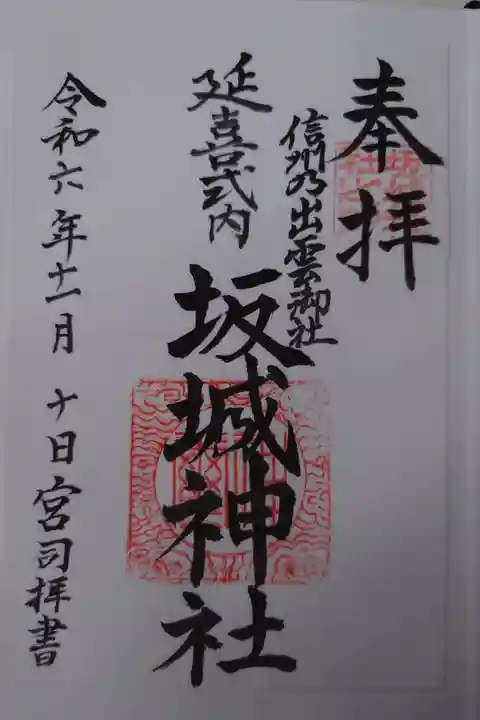 奉拝
信州乃出雲御社
延喜式内
坂城神社
令和六年十一月 十日 宮司拝書